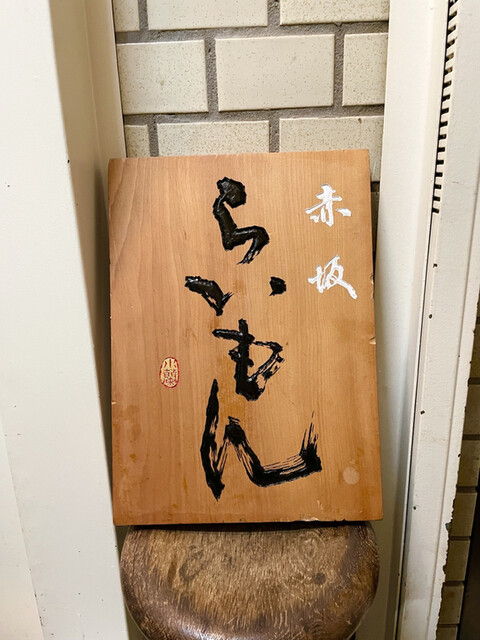 赤坂
らいもん